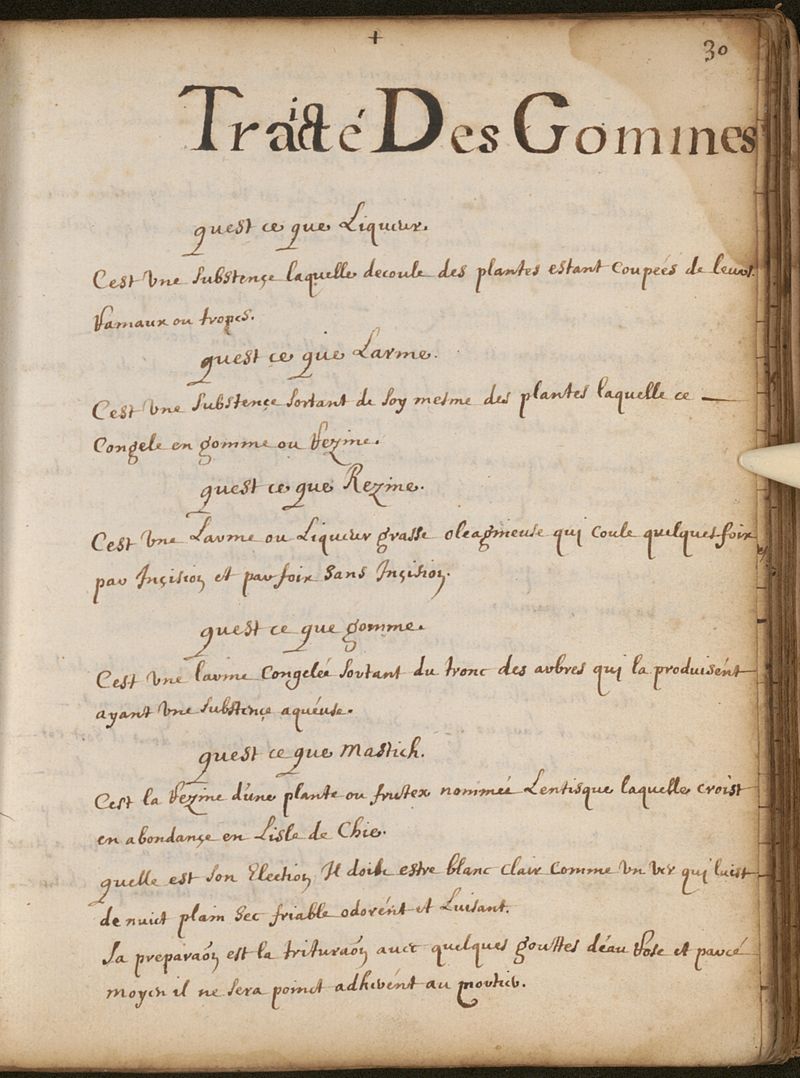 30
Traicté Des Gommes
quest ce que Liqueur.
C'est Une substençe laquelle decoule des plantes estant coupeés de leurs
Ramaux ou tropcs.
quest ce que Larme.
C'est Une substençe sortant de soy mesme des plantes laquelle ce
Congele en gomme ou Rezine.
quest ce que Rezine.
C'est Une Larme ou Liqueur grasse oleagineuse qui coule quelquesfoix
par Inçision et par foix sans Inçision.
quest ce que gomme.
C'est Une larme Congeleé sortant du tronc des arbres qui la produisént
ayant Une substençe aquéuse.
quest ce que Mastich.
C'est la Rezine d'une plante ou frutex nommeé Lentisque laquelle croist
en abondançe en Lisle de Chie.
quelle est son Election Il doibt estre blanc clair comme Un ver qui luist
de nuict plain sec friable odorént et Luisant.
Sa preparaõn est la trituraõn avec quelques gouttes d'éau Rose et parcé
moyen il ne sera poinct adhirént au mortier.